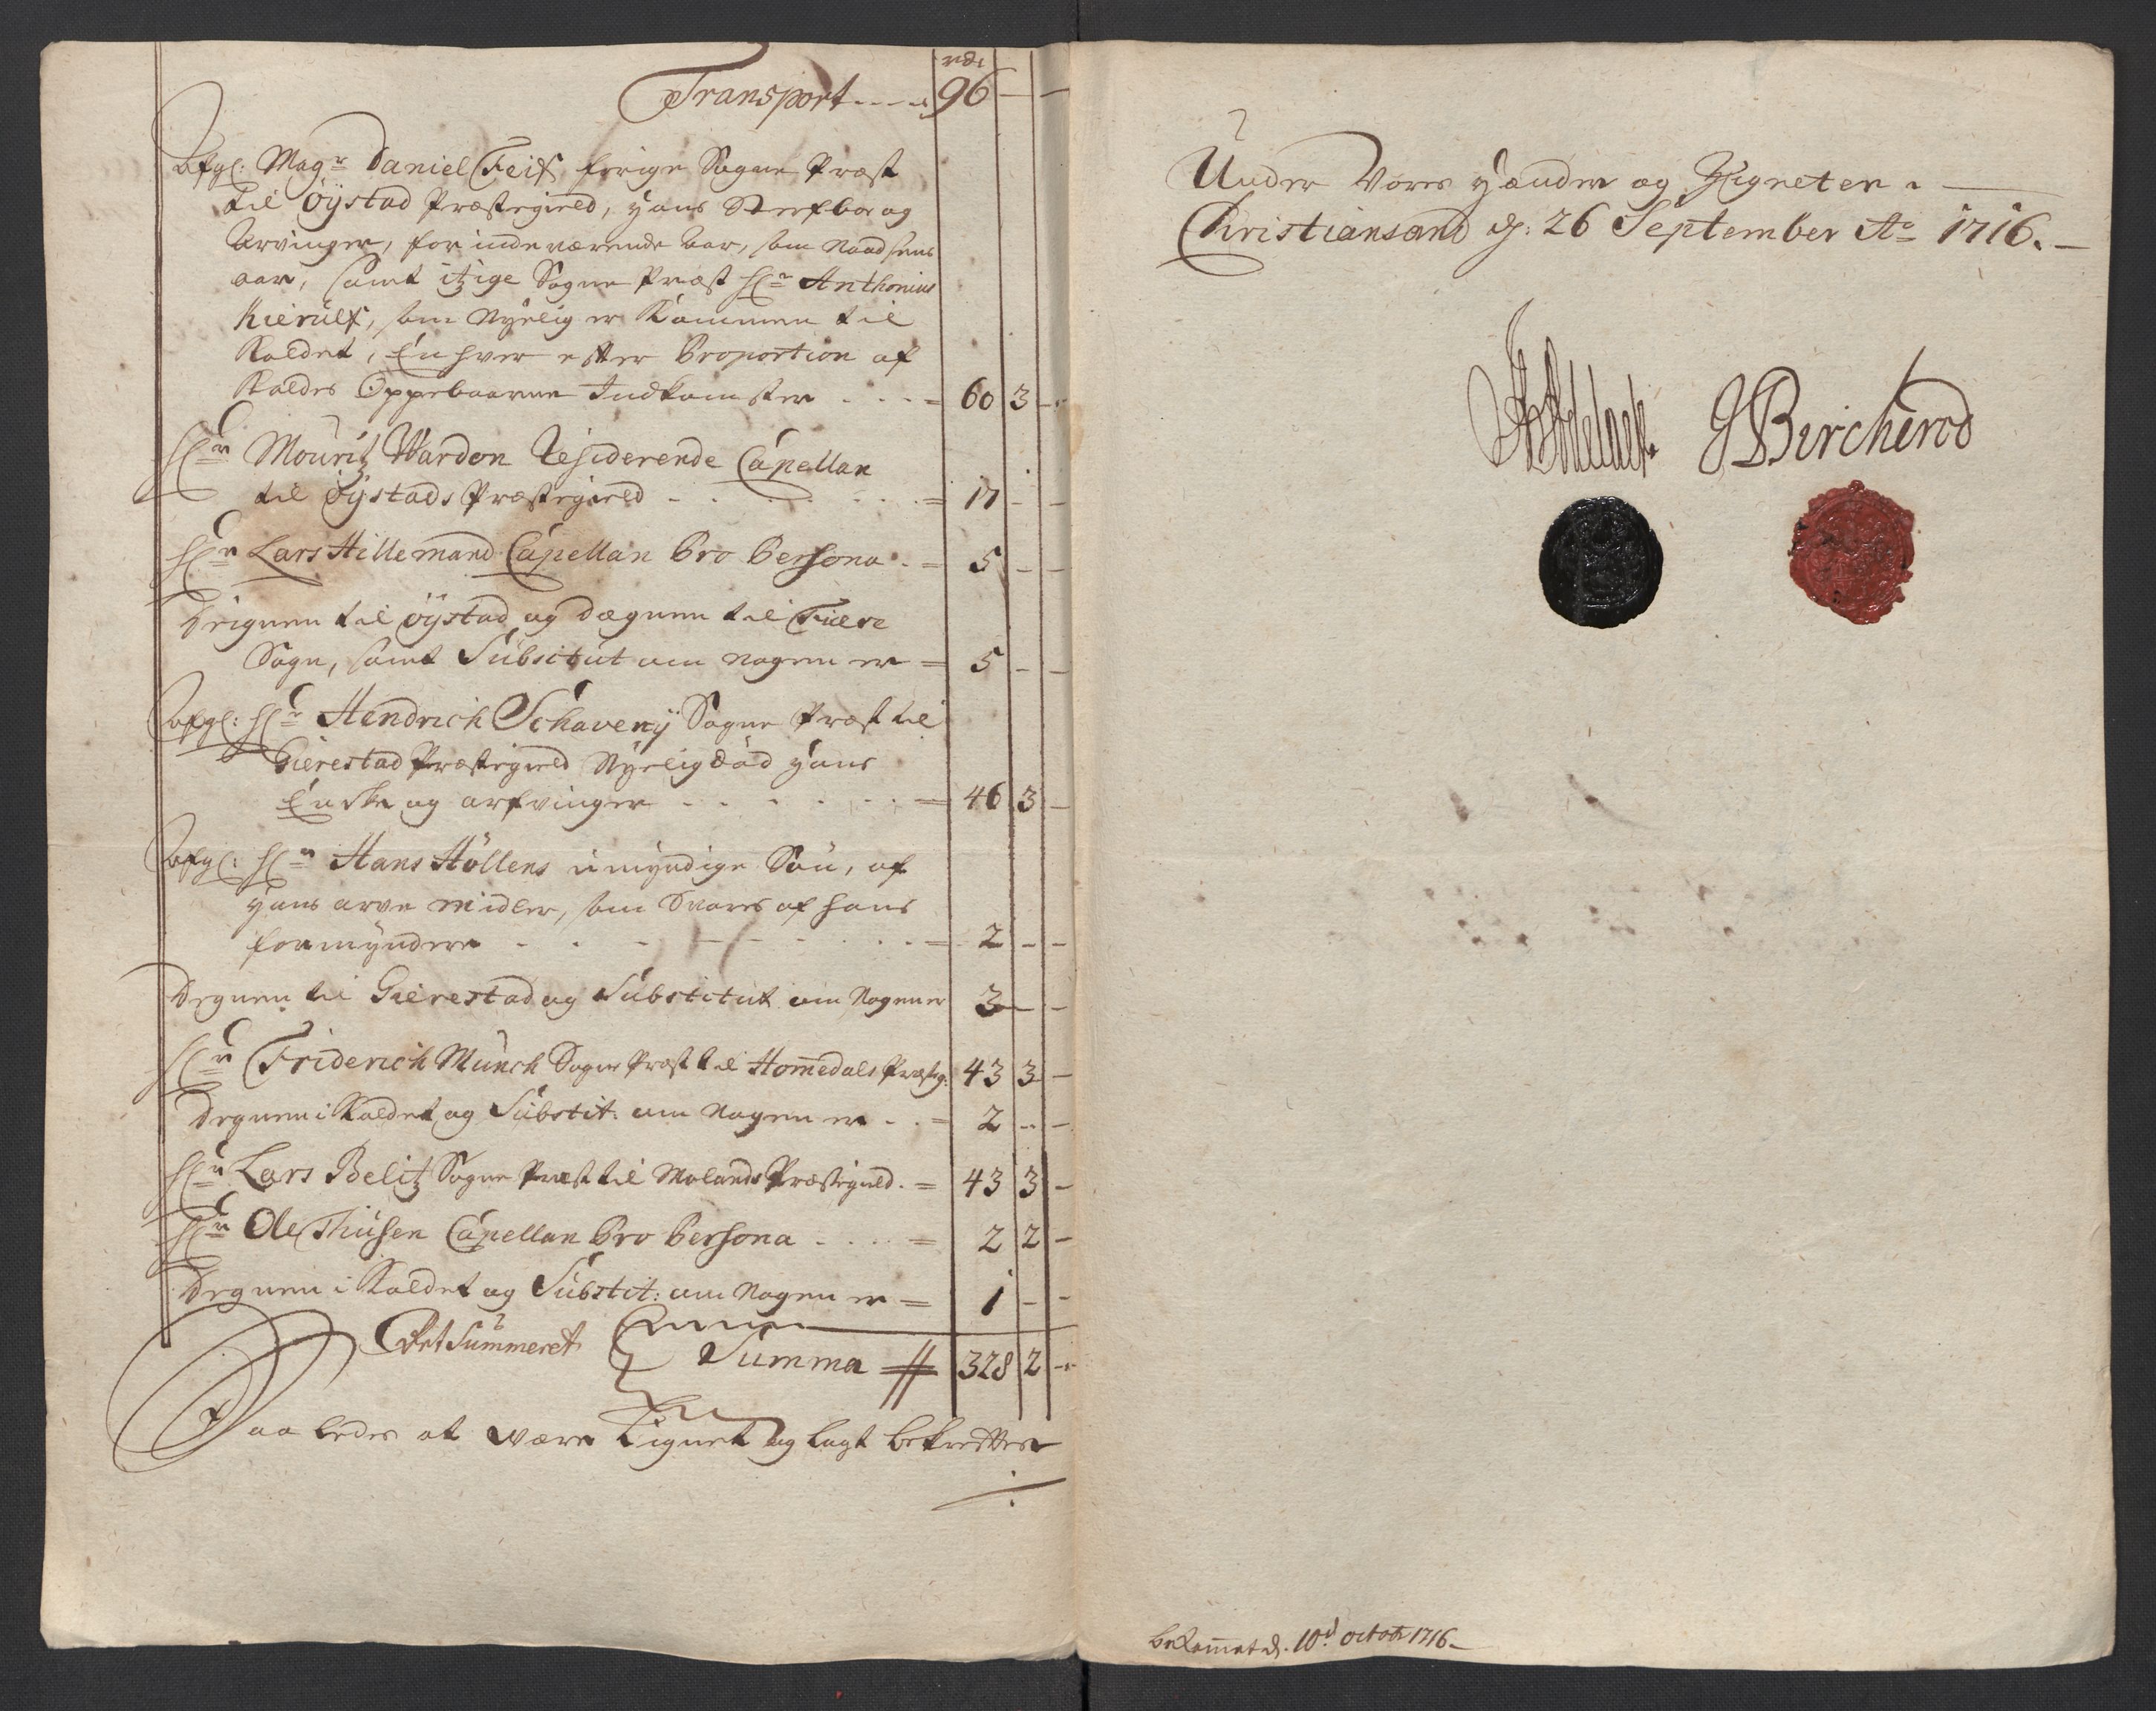 rdr
Transport - - - - 96 — —
Afgl: Magr Daniel Feif, forige Sogne Præst
til Öÿstad Præstegield, hans Sterfboe og
Arvinger, for indeværende aar, som Naadsens
aar, samt itzige Sogne Præst Hr Anthonius
Kierulf, som Nyelig er Kommen til
Kaldet, Enhver efter Proportion af
Kaldes Oppebaarne Indkomster - - - = 60 3 -
Hr Mouritz Wardon Residerende Capellan
til Öÿstads Præstegield - - - - - = 17 - -
Hr Lars Hillemand Capellan Pro Persona - = 5 - -
Deignen til Öÿstad og Dægnen til Fiere
Sogn, samt Subsitut om nogen er = 5 - -
Afgl: Hr Hendrich Schavenÿ Sogne Præst til
Gierestad Præstegield Nyelig død hans
Encke og arfvinger - - - - - = 46 3 -
Afgl: Hr Hans Höllens umÿndige Søn, af
hans arve midler, som Svares af hans
formÿndere - - - - - - = 2 - -
Degnen til Gierestad og Substitut om Nogen er 3 - -
Hr Friderich Münch Sogne Præst til Homedals Præsteg: 43 3 -
Degnen i Kaldet og Substit: om Nogen er - - = 2 - -
Hr Lars Belitz Sogne Præst til Molands Præstegield - = 43 3 -
Hr Ole Thuesen Capellan Pro Persona - - - - = 2 2 -
Degnen i Kaldet og Substit: om Nogen er = 1 - -
Ret Summeret Summa 328 2 -
Saaledes at være Lignet og lagt bekreftes
Under Vores Hænder og Signeter. —
Christiansand d: 26 September Ao 1716. —
J Bircherod
bekommet d. 10d octobr 1716 —